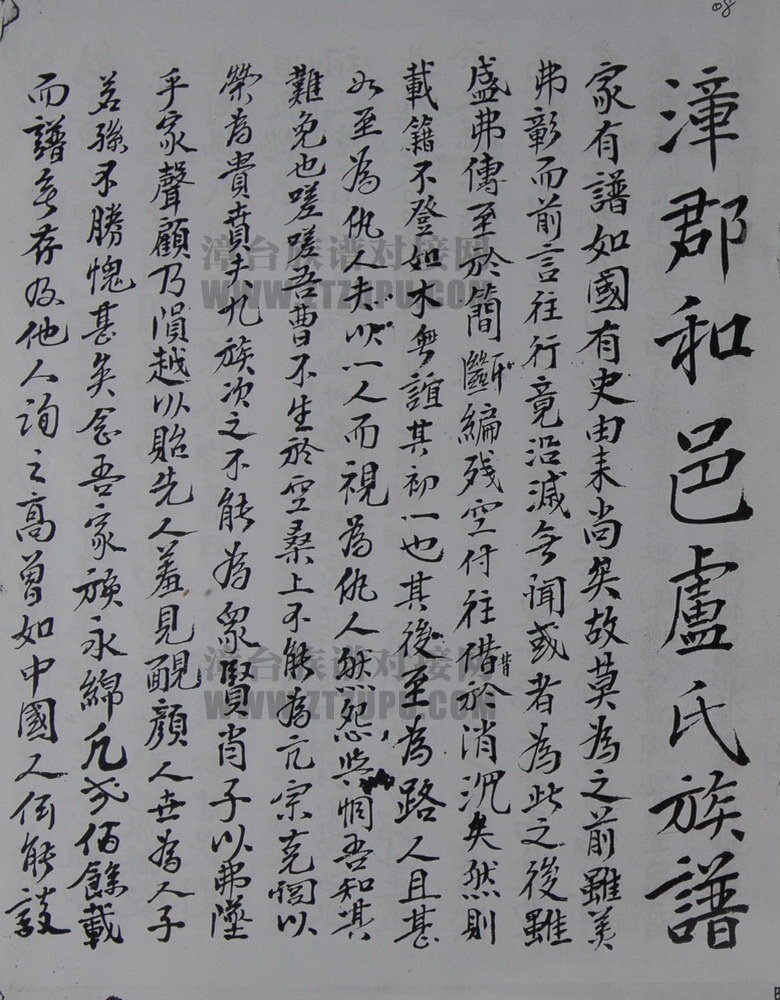 08
漳郡和邑盧氏族譜
家有譜如國有史由来尚矣故莫為之前雖美
弗彰而前言往行竟沿滅無聞或者為此之後雖
盛弗傳至於簡斷編残空付往借於消沉矣然則
載籍不登如木無誼其初一也其後至為路人且甚
必至為仇人夫以一人而視為仇人
難免也嗟嗟吾曹不生於空桑上不能為亢宗克
榮為貴賁于九族次之不能為象賢肖子以弗墜
乎家聲顧乃隕越以貽先人羞見靦顏人世為人子
若孫不勝愧甚矣念吾家族永綿凡
佰餘載
而譜無存及他人詢之高曾如中國人何能談
漳台族谱对接网
WWW.ZTZUPU.COM
漳台族谱对接网
WWW.ZTZUPU.COM